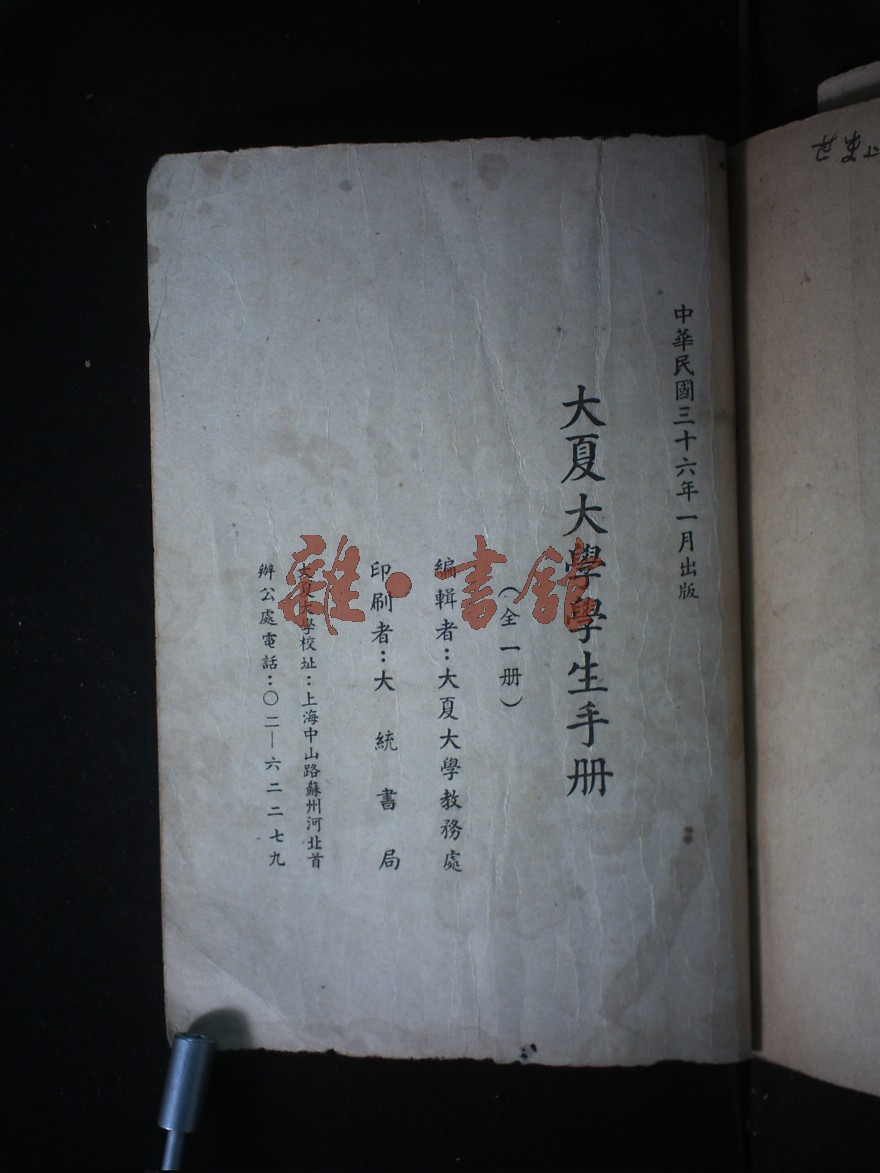 中華民國三十六年一月出版
大夏大學學生手册
（全一册）
編輯者：大夏大學教務處
印刷者：大統書局
大夏大學校址：上海中山路蘇州河北首
辦公處電話：〇二—六二二七九
雜·書館